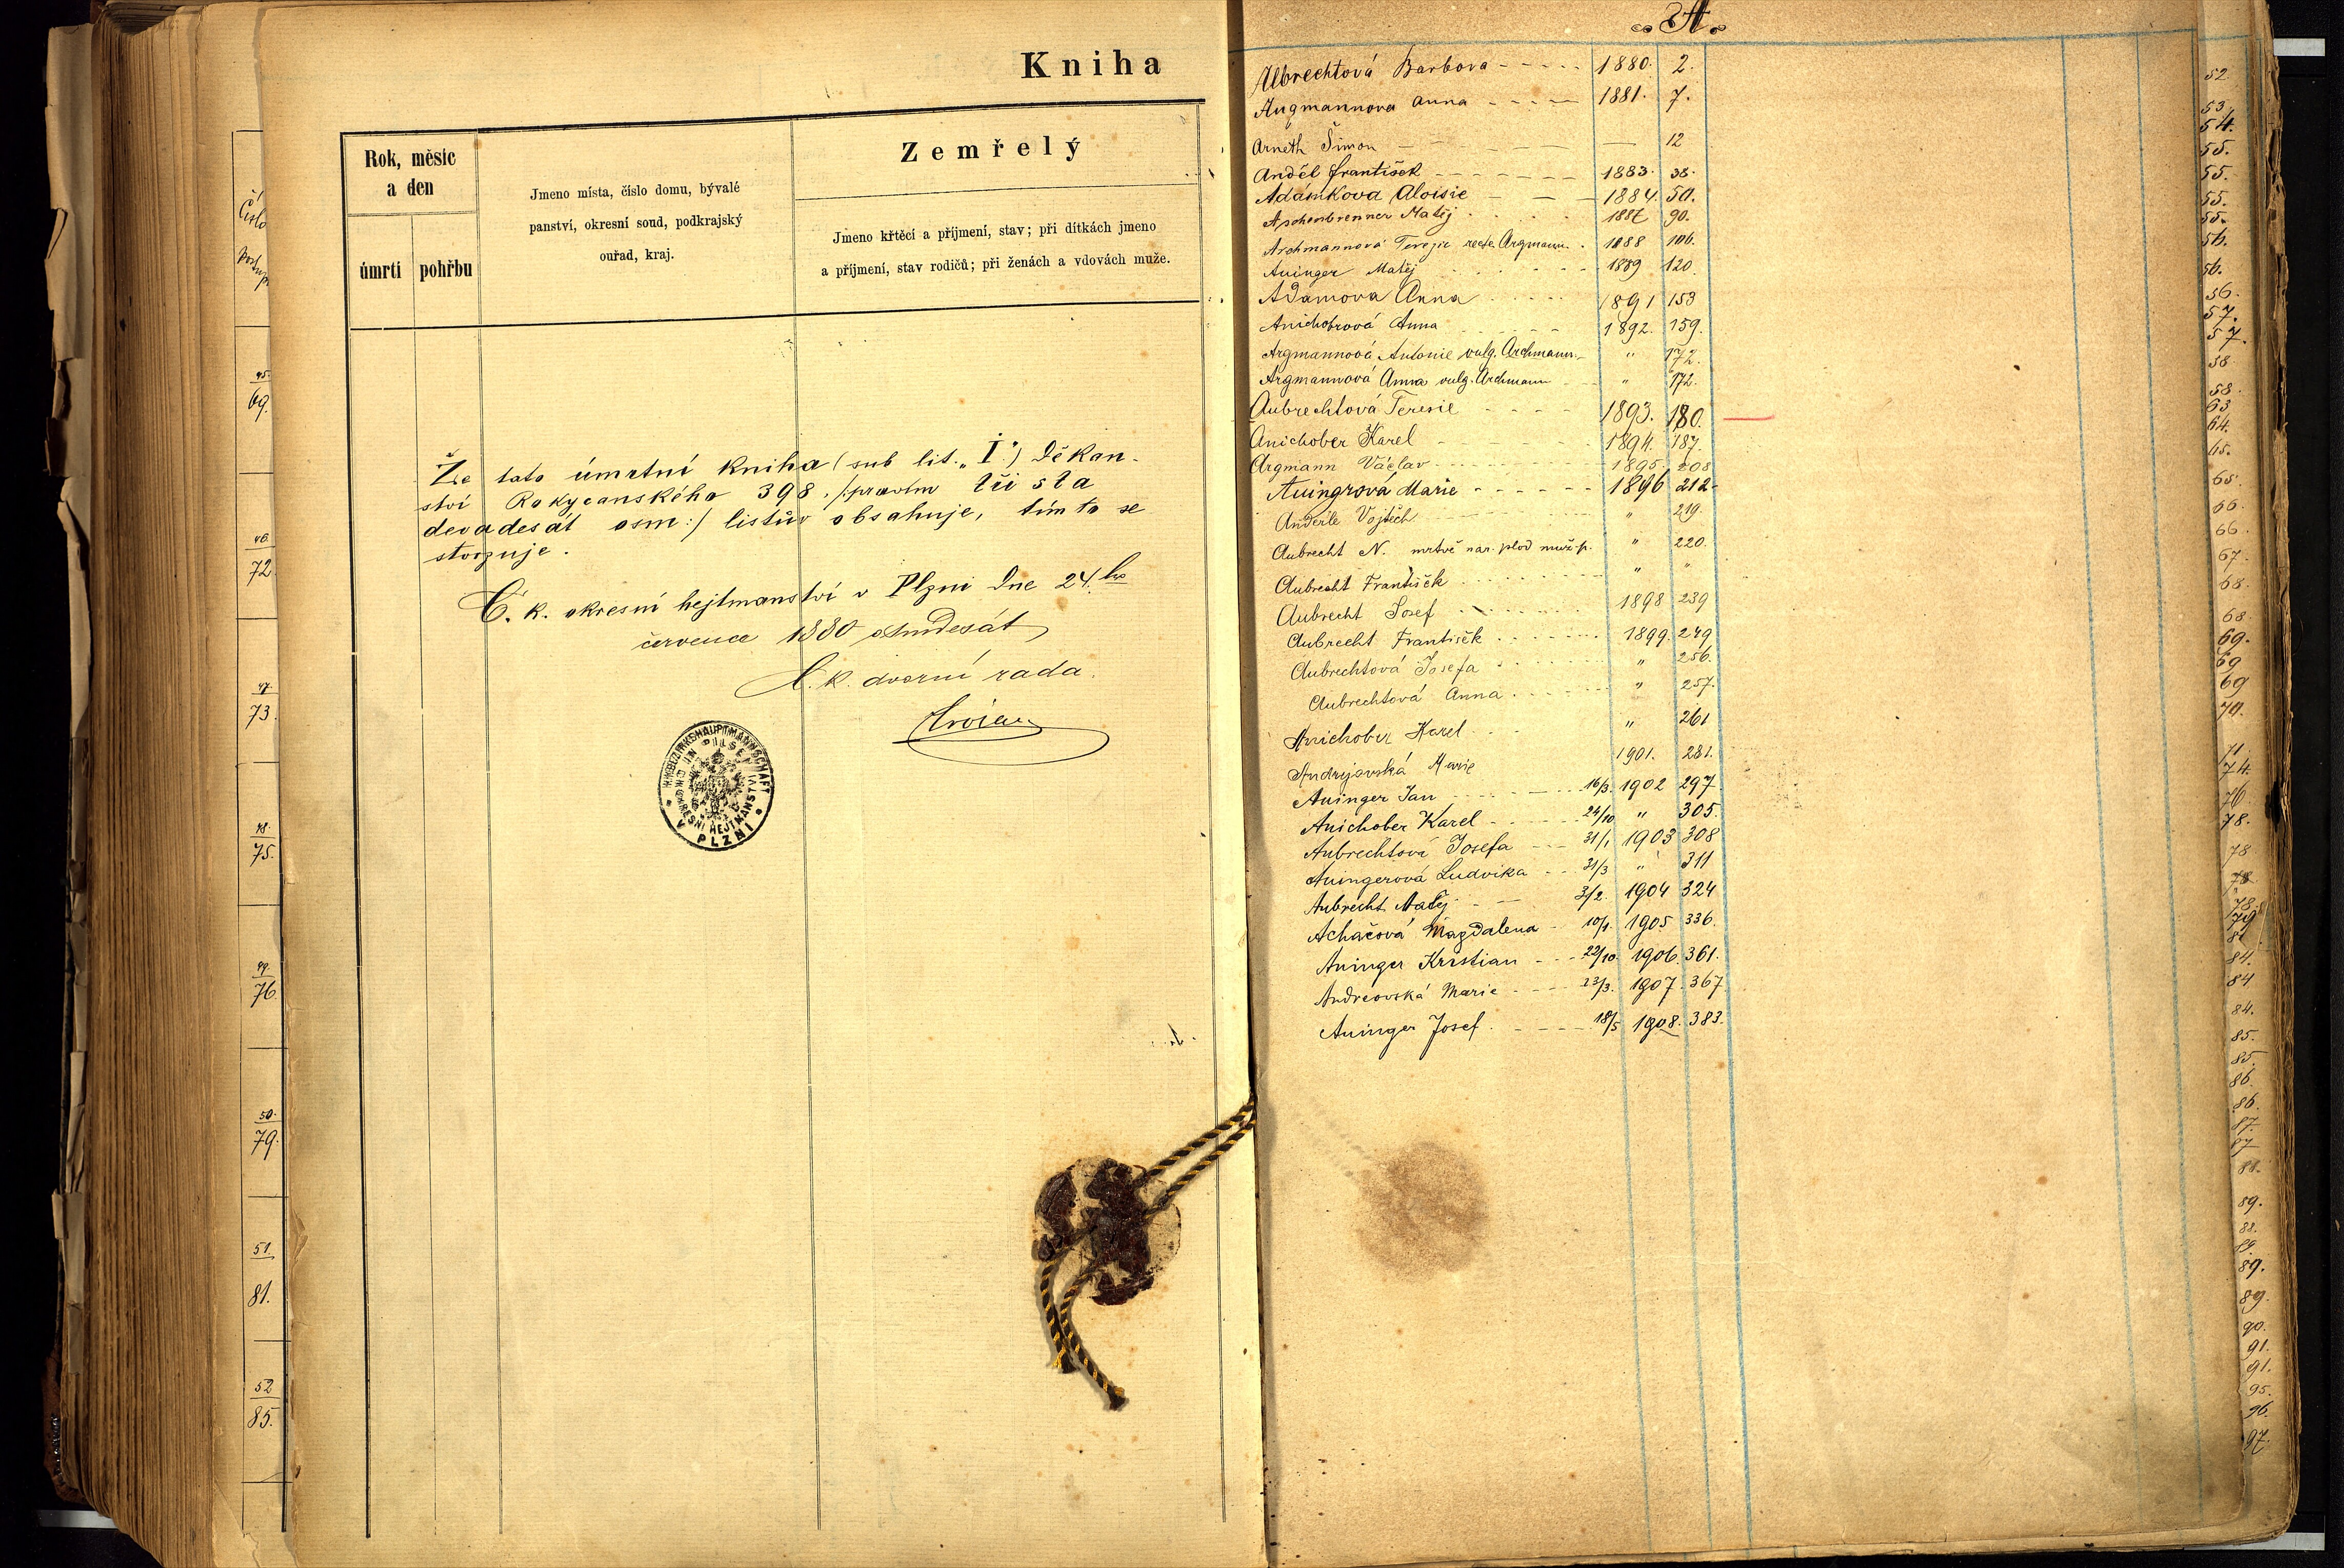 Kniha
Rok, měsíc
a den
úmrtí
pohřbu
Jmeno místa, číslo domu, bývalé
panství, okresní soud, podkrajský
ouřad, kraj.
Zemřelý
Jmeno křtěcí a příjmení, stav; při dítkách jmeno
a příjmení, stav rodičů; při ženách a vdovách muže.
Číslo
45.
69.
46.
72.
47.
73.
48.
75.
49.
76.
50.
79.
51.
81.
52
85.
Že tato úmrtní kniha (sub lit. „I.“) děkan-
ství Rokycanského 398. /:pravím tři sta
devadesát osm:/ listův obsahuje, tím to se
stvrzuje.
C. k. okresní hejtmanství v Plzni dne 24. ho
července 1880 osmdesát
C. k. dvorní rada.
K.K. BEZIRKSHAUPTMANNSCHAFT
IN PILSEN
OKRESNÍ HEJTMANSTVÍ
V PLZNI
A.
Albrechtová Barbora 1880. 2.
Augmannova Anna 1881. 7.
Arneth Šimon — 12
Anděl František 1883. 38.
Adámkova Aloisie 1884. 50.
Aschenbrenner Matěj 1887 90.
Archmannová Terezie recte Argmann. 1888 106.
Auinger Matěj 1889 120.
Adamova Anna 1891 153
Anichobrová Anna 1892. 159.
Argmannová Antonie vulg. Archmann " 172.
Argmannová Anna vulg. Archmann " 172.
Aubrechtová Teresie 1893. 180.
Anichober Karel 1894. 187.
Argmann Václav 1895. 208
Auingrová Marie 1896 212
Anderle Vojtěch " 219.
Aubrecht N. mrtvě nar. plod muž. p. " 220.
Aubrecht František " "
Aubrecht Josef 1898 239
Aubrecht František 1899. 249
Aubrechtová Josefa " 256.
Aubrechtová Anna " 257.
Anichober Karel " 261
Andrejovská Marie 1901. 281.
Auinger Jan 16/3. 1902 297
Anichober Karel 24/10 " 305.
Aubrechtová Josefa 31/1 1903 308
Auingerová Ludvika 31/3 " 311
Aubrecht Matěj 3/2 1904 324
Achačová Magdalena 10/1. 1905 336.
Auinger Kristian 22/10. 1906. 361.
Andreovská Marie 23/3. 1907. 367
Auinger Josef 18/5 1908. 383.
52.
53.
54.
55.
55.
55.
55.
56.
56.
56.
57.
57.
58
58.
63
64.
65.
65.
66.
66.
67.
68.
68.
69.
69
69
70.
71.
74.
76.
78.
78
78
78.
79
81
84.
84
84.
85.
85.
86.
86.
87.
87
88.
89.
88.
89.
89.
89.
90.
91.
91.
95.
96.
97.